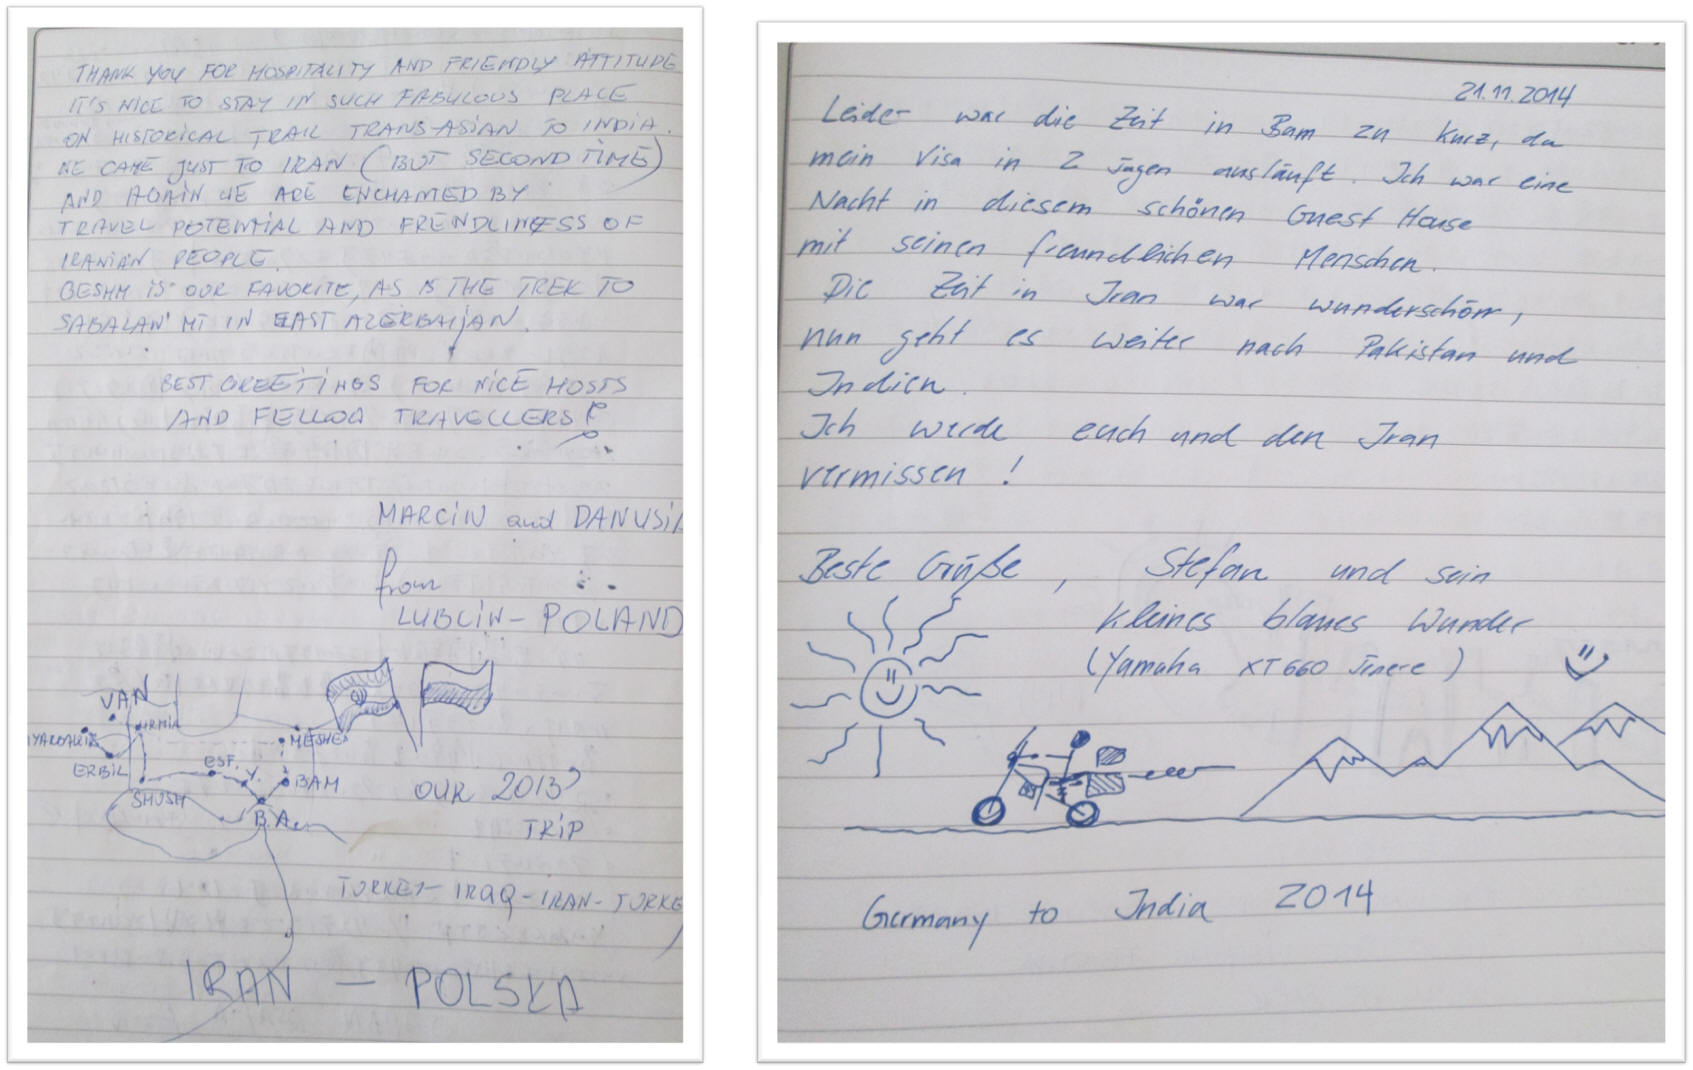 THANK YOU FOR HOSPITALITY AND FRIENDLY ATTITUDE
IT'S NICE TO STAY IN SUCH FABULOUS PLACE
ON HISTORICAL TRAIL TRANS-ASIAN TO INDIA.
WE CAME JUST TO IRAN (BUT SECOND TIME)
AND AGAIN WE ARE ENCHAMED BY
TRAVEL POTENTIAL AND FRENDLINESS OF
IRANIAN PEOPLE.
IS OUR FAVORITE, AS IS THE TREK TO
SABALAN' MT IN EAST AZERBAIJAN.
BEST GREETINGS FOR NICE HOSTS
AND FELLOW TRAVELLERS
MARCIN and DANUSIA
from
LUBLIN - POLAND
VAN
URMIA
MESHED
ERBIL
ESF.
Y.
BAM
SHUSH
B.A.
OUR 2013
TRIP
TURKEY - IRAQ - IRAN - TURKE
IRAN — POLSKA
21.11.2014
Leider war die Zeit in Bam zu kurz, da
mein Visa in 2 Tagen ausläuft. Ich war eine
Nacht in diesem schönen Guest House
mit seinen freundlichen Menschen.
Die Zeit in Iran war wunderschön,
nun geht es weiter nach Pakistan und
Indien.
Ich werde euch und den Iran
vermissen !
Beste Grüße, Stefan und sein
kleines blaues Wunder
(Yamaha XT660 Tenere)
Germany to India 2014